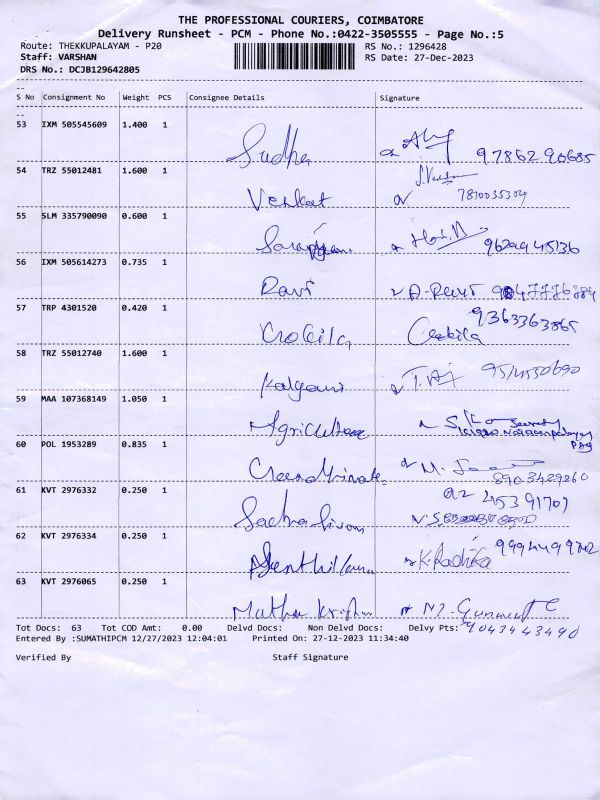 THE PROFESSIONAL COURIERS, COIMBATORE
Delivery Runsheet - PCM - Phone No.:0422-3505555 - Page No.:5
Route: THEKKUPALAYAM - P20 RS No.: 1296428
Staff: VARSHAN RS Date: 27-Dec-2023
DRS No.: DCJB129642805
S No Consignment No Weight PCS Consignee Details Signature
53 IXM 505545609 1.400 1
Sudha
54 TRZ 55012481 1.600 1
Venkat 7810035304
55 SLM 335790090 0.600 1
9629945136
56 IXM 505614273 0.735 1
Ravi
57 TRP 4301520 0.420 1
9363363865
58 TRZ 55012740 1.600 1
Kalyani
59 MAA 107368149 1.050 1
Agriculture
60 POL 1953289 0.835 1
8903429260
61 KVT 2976332 0.250 1
62 KVT 2976334 0.250 1
K. Radhika
63 KVT 2976065 0.250 1
Tot Docs: 63 Tot COD Amt: 0.00 Delvd Docs: Non Delvd Docs: Delvy Pts:
9043443490
Entered By :SUMATHIPCM 12/27/2023 12:04:01 Printed On: 27-12-2023 11:34:40
Verified By Staff Signature